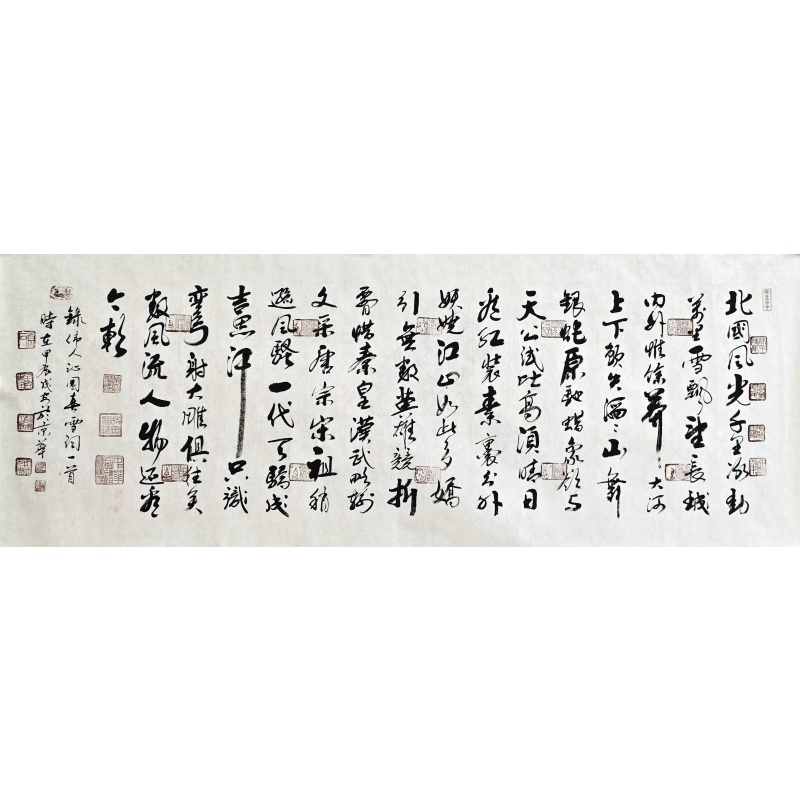 北國风光千里冰封
萬里雪飄望長城
内外惟餘莽々大河
上下頓失滔々山舞
銀蛇原馳蠟象欲與
天公試比高須晴日
看紅裝素裹分外
妖嬈江山如此多嬌
引無數英雄競折
腰惜秦皇漢武略輸
文采唐宗宋祖稍
遜风騷一代天驕成
吉思汗只識
彎弓射大雕俱往矣
數风流人物還看
今朝
錄偉人沁園春雪詞一首
時在甲辰於京華